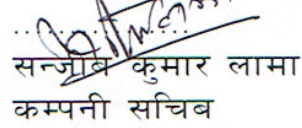 सन्जीब कुमार लामा
कम्पनी सचिब